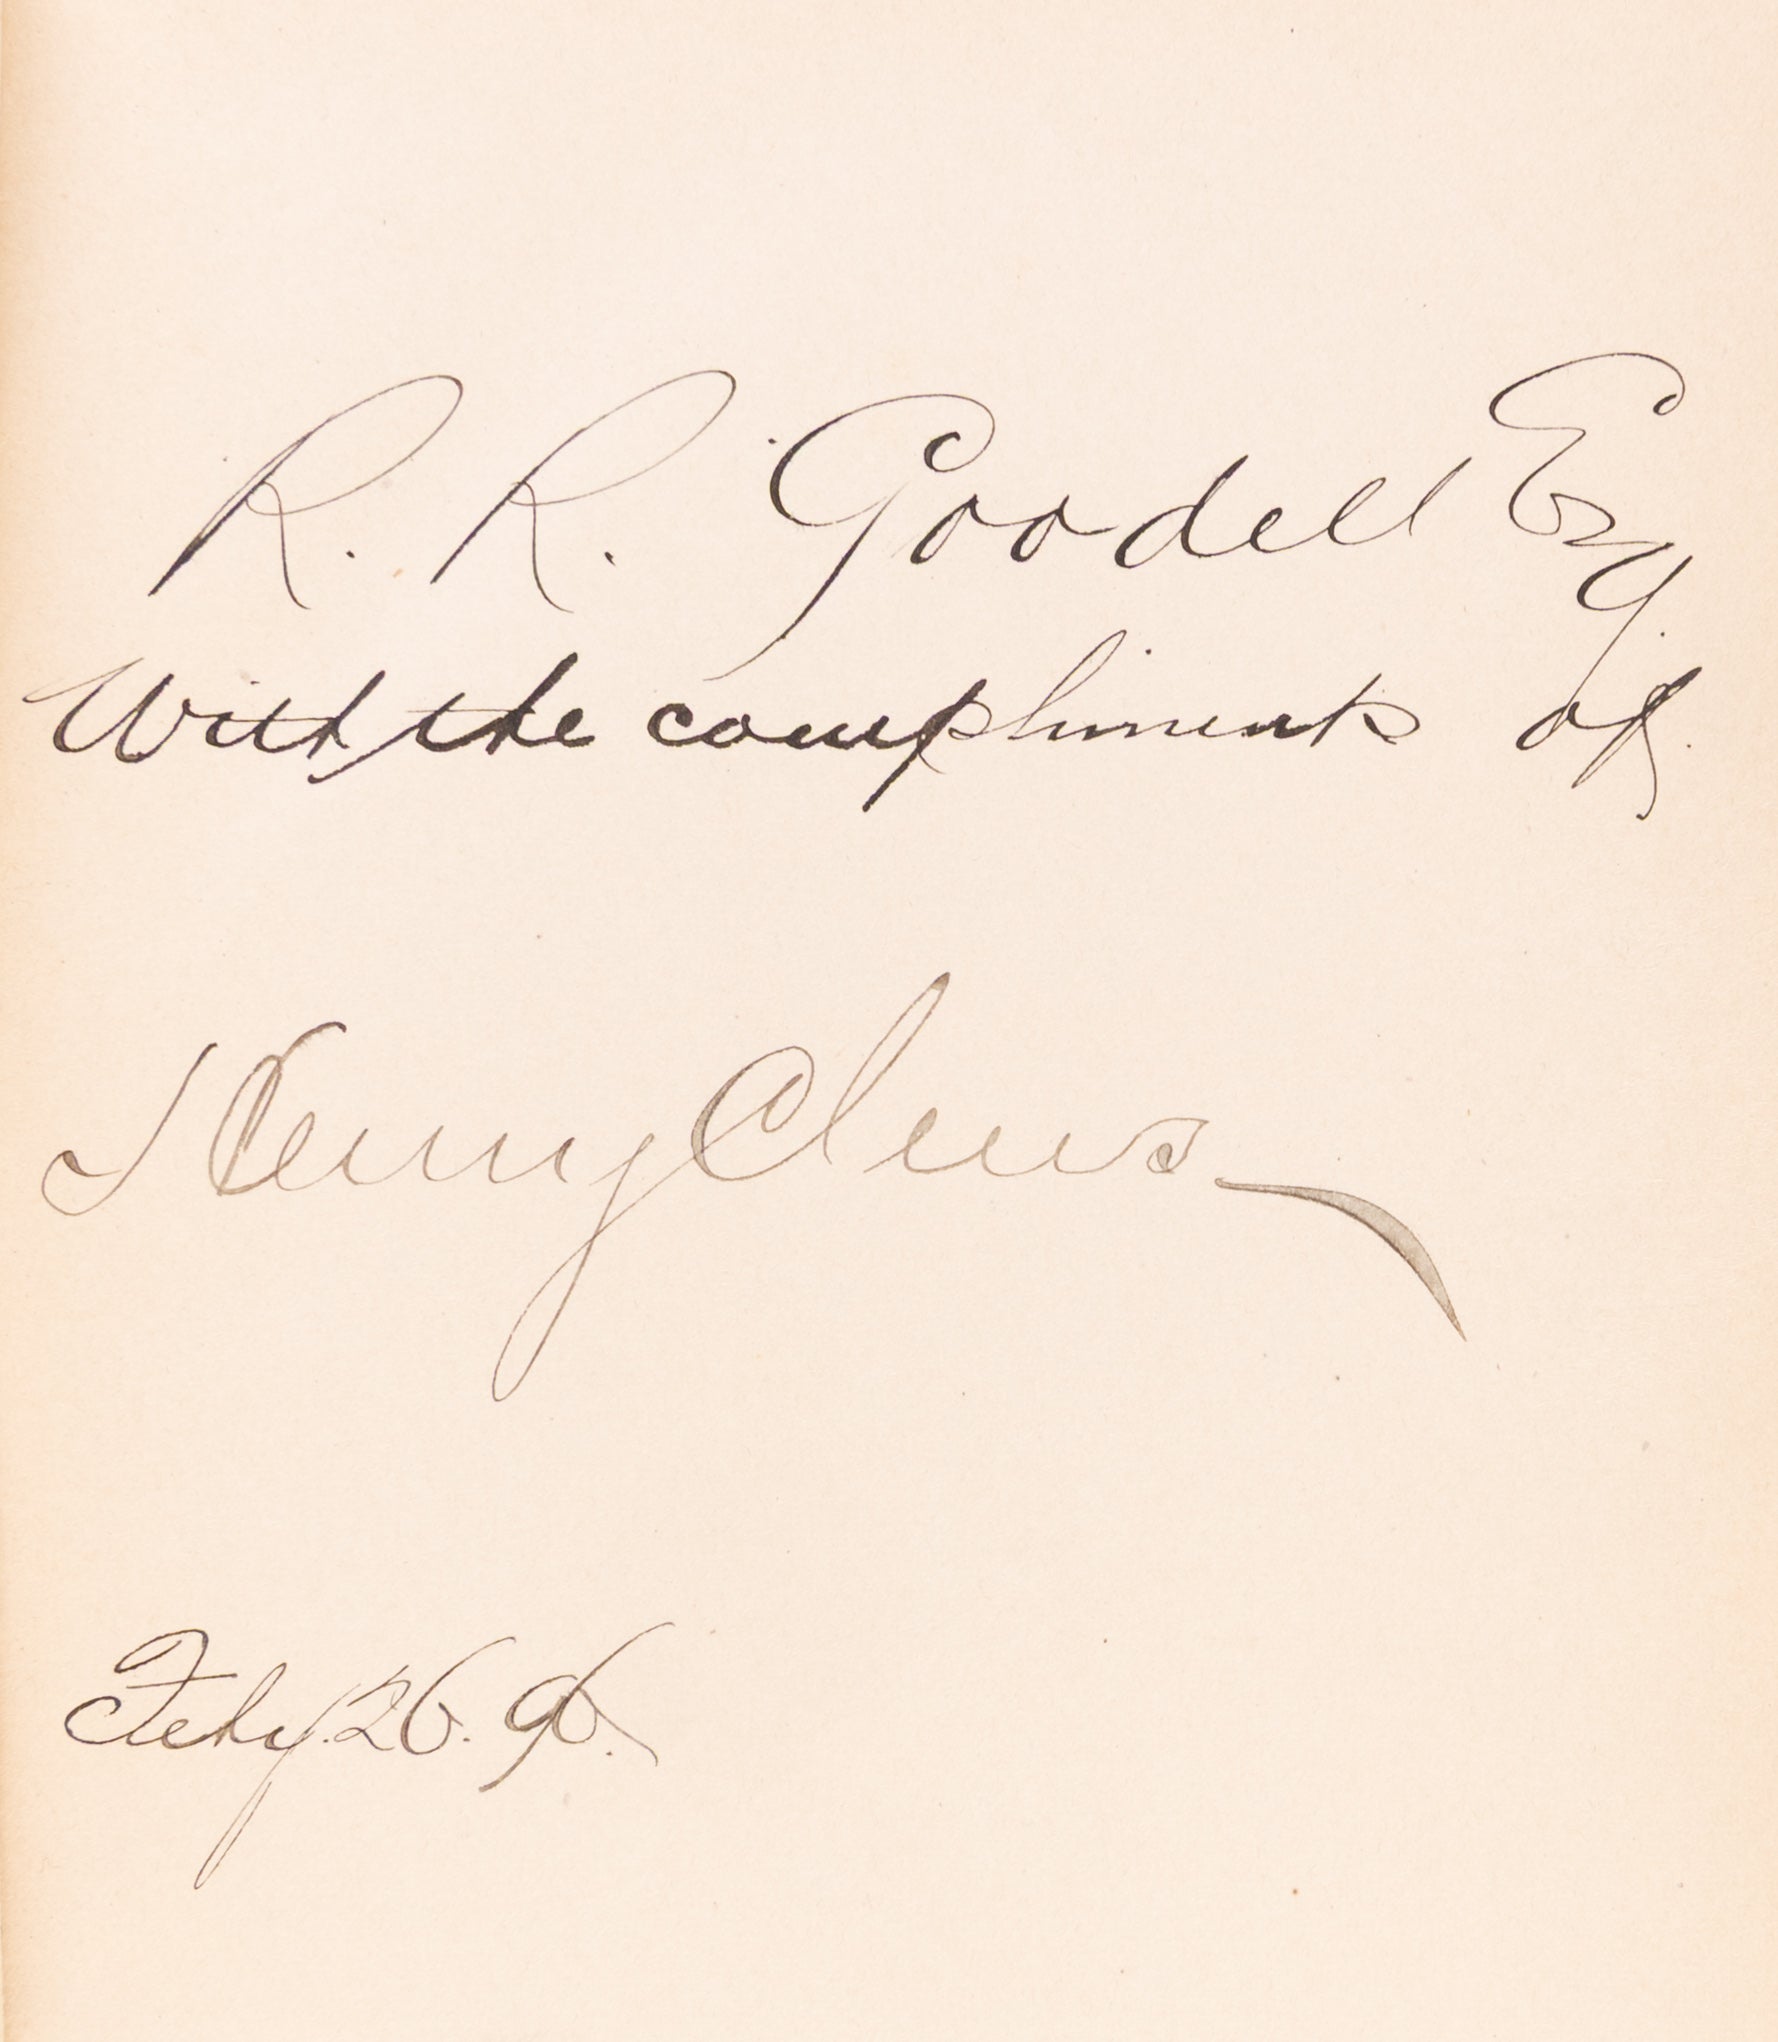 R. R. Goodell Esq.
With the compliments of
Henry Clews
Feby. 26. 96.